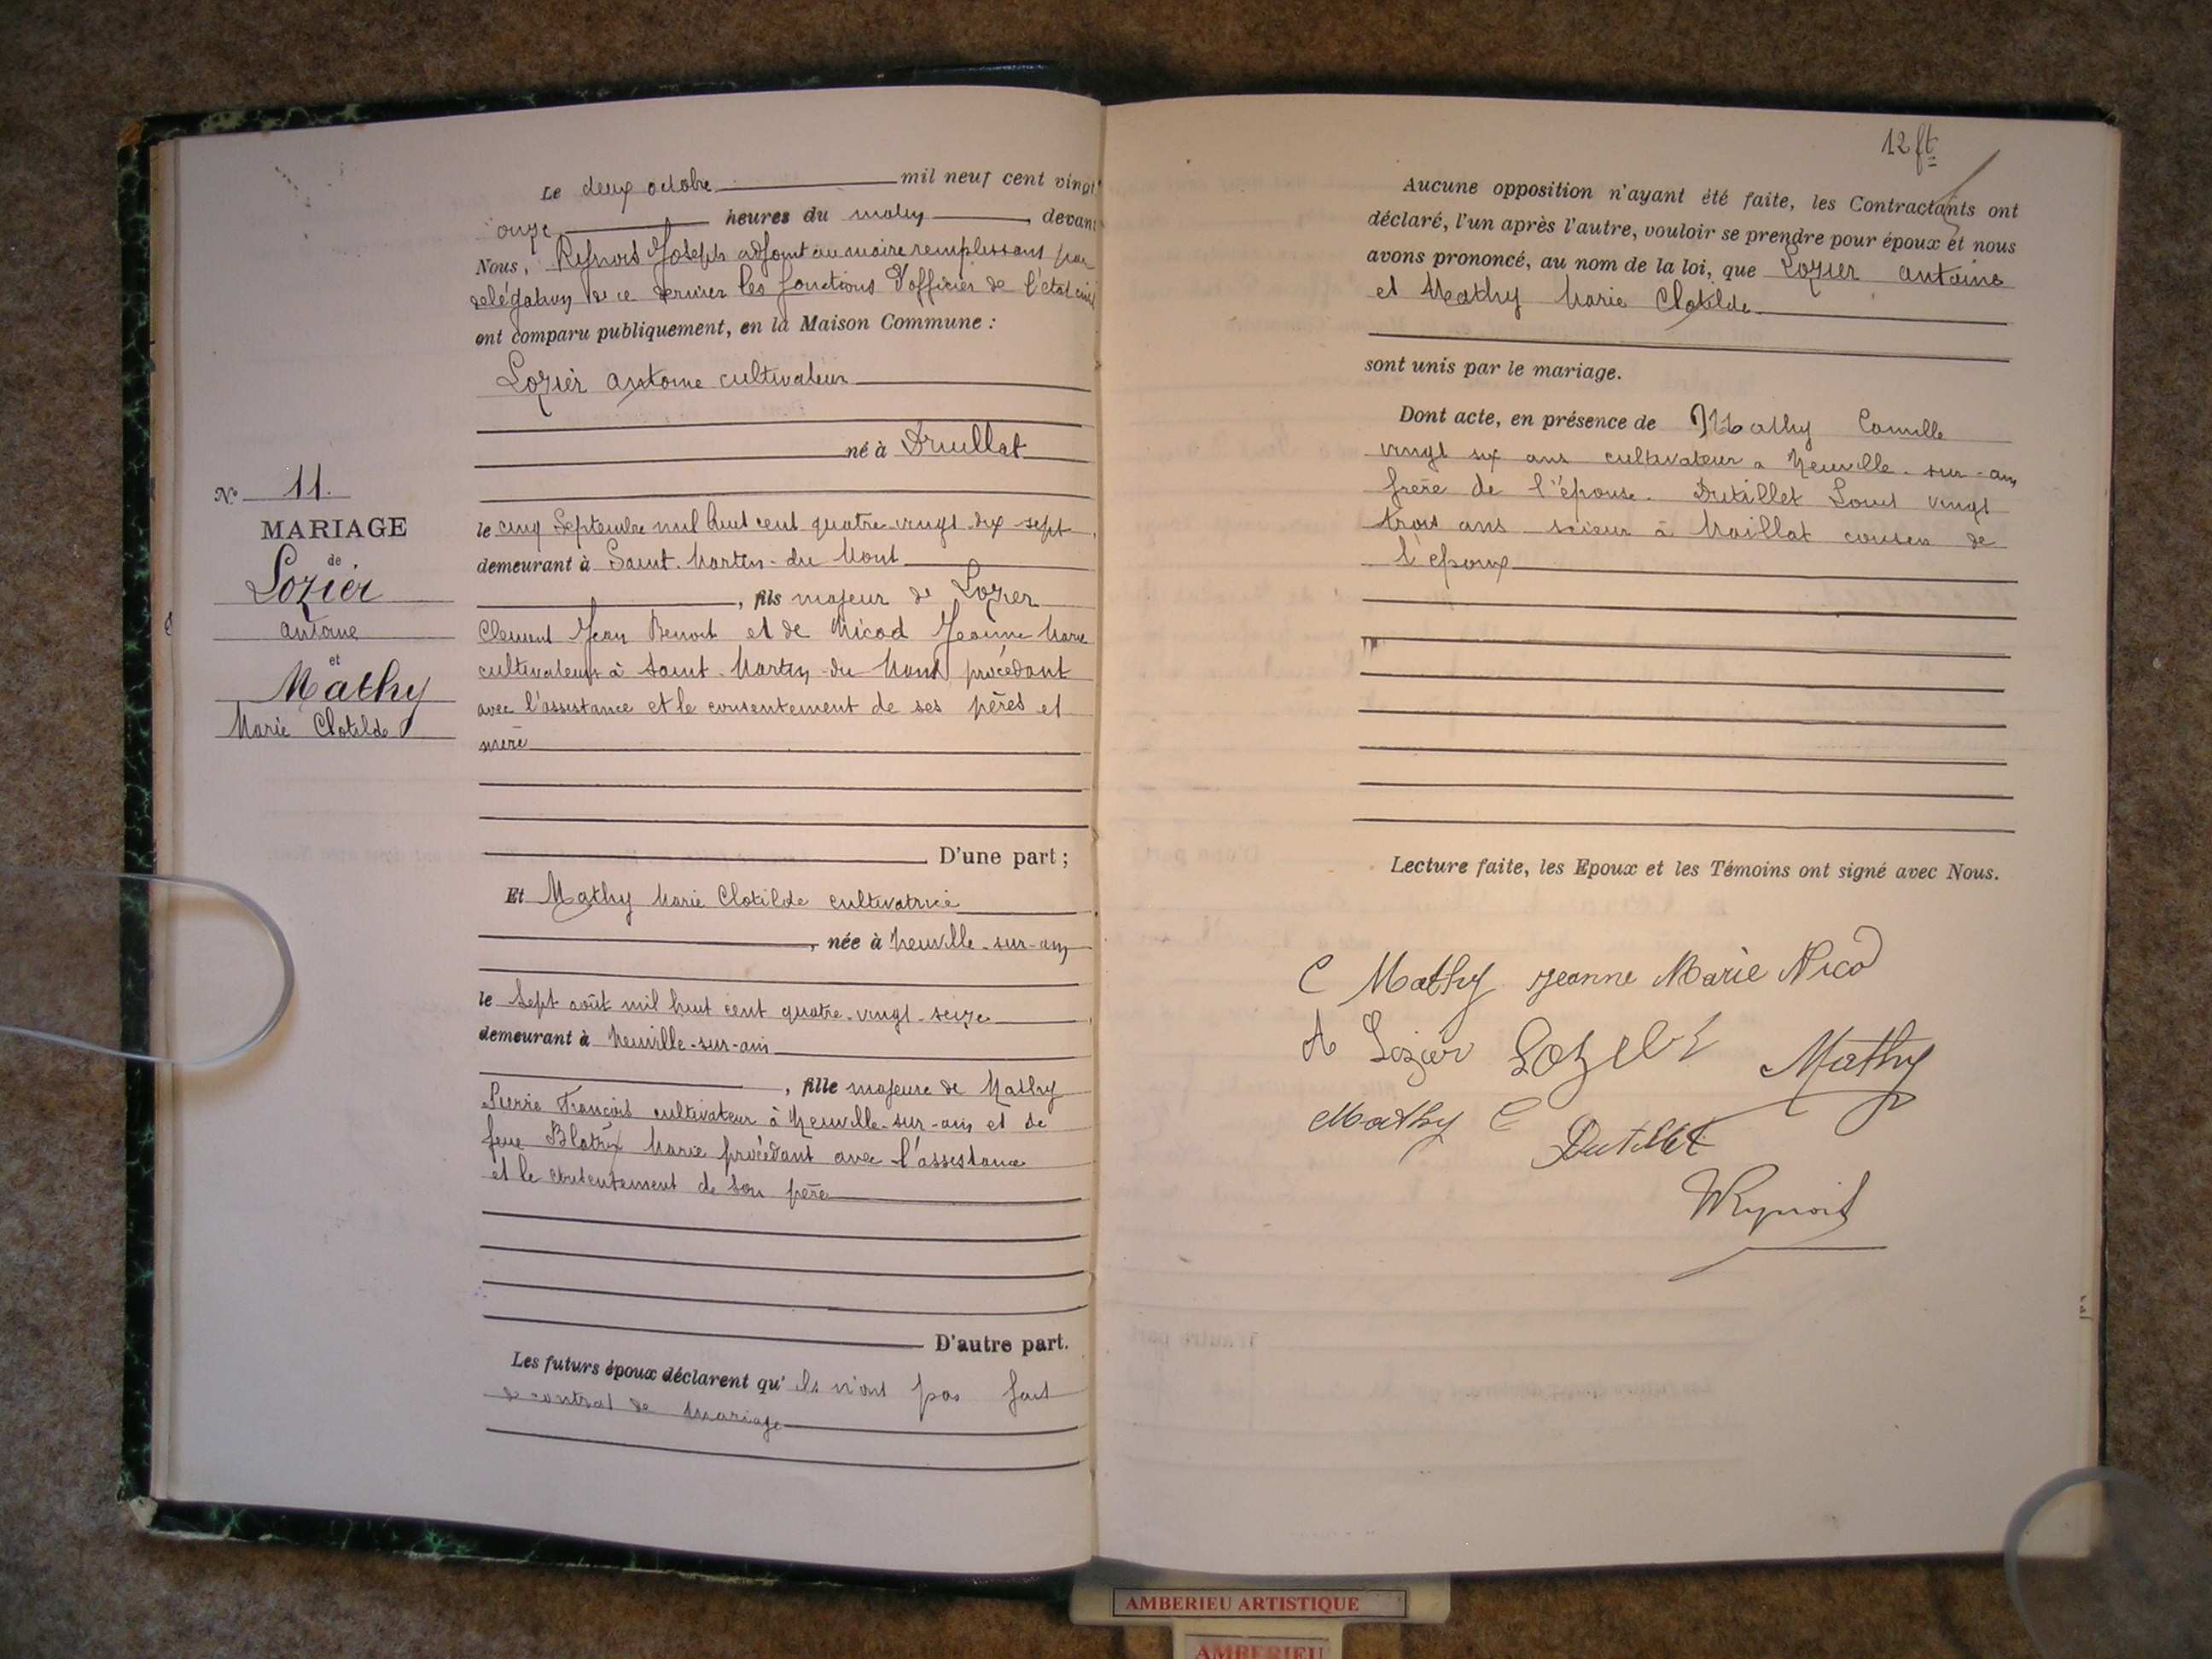 Le deux octobre mil neuf cent vingt
onze heures du matin, devant
Nous, Reynois Joseph adjoint au maire remplissant par
delégation de ce dernier les fonctions d'officier de l'état civil
ont comparu publiquement, en la Maison Commune :
Lozier Antoine cultivateur
né à Druillat
N° 11.
MARIAGE
de
Lozier
Antoine
et
Mathy
Marie Clotilde
le cinq Septembre mil huit cent quatre-vingt-dix-sept
demeurant à Saint-Martin-du-Mont
, fils majeur de Lozier
Clement Jean Benoit et de Nicod Jeanne Marie
cultivateurs à Saint-Martin-du-Mont procédant
avec l'assistance et le consentement de ses pères et
mère
D'une part ;
Et Mathy Marie Clotilde cultivatrice
, née à Neuville-sur-ain
le sept août mil huit cent quatre-vingt-seize
demeurant à Neuville-sur-ain
, fille majeure de Mathy
Pierre François cultivateur à Neuville-sur-ain et de
feue Blatrix Marie procédant avec l'assistance
et le consentement de son père
D'autre part.
Les futurs époux déclarent qu'ils n'ont pas fait
de contrat de mariage
12 ft
Aucune opposition n'ayant été faite, les Contractants ont
déclaré, l'un après l'autre, vouloir se prendre pour époux et nous
avons prononcé, au nom de la loi, que Lozier Antoine
et Mathy Marie Clotilde
sont unis par le mariage.
Dont acte, en présence de Mathy Camille
vingt six ans cultivateur a Neuville-sur-ain
frère de l'épouse. Dutillet Louis vingt
trois ans scieur à Maillat cousin de
l'époux
Lecture faite, les Epoux et les Témoins ont signé avec Nous.
C Mathy Jeanne Marie Nicod
A Lozier Mathy
Mathy C Dutillet
Reynois
AMBERIEU ARTISTIQUE
AMBERIEU